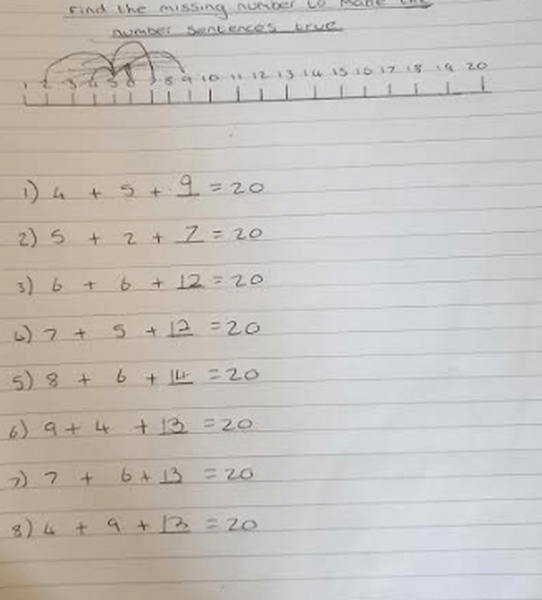 Find the missing number to make the
number sentences true
1 2 3 4 5 6 8 9 10 11 12 13 14 15 16 17 18 19 20
1) 4 + 5 + 9 = 20
2) 5 + 2 + 7 = 20
3) 6 + 6 + 12 = 20
4) 7 + 5 + 12 = 20
5) 8 + 6 + 14 = 20
6) 9 + 4 + 13 = 20
7) 7 + 6 + 13 = 20
8) 4 + 9 + 13 = 20